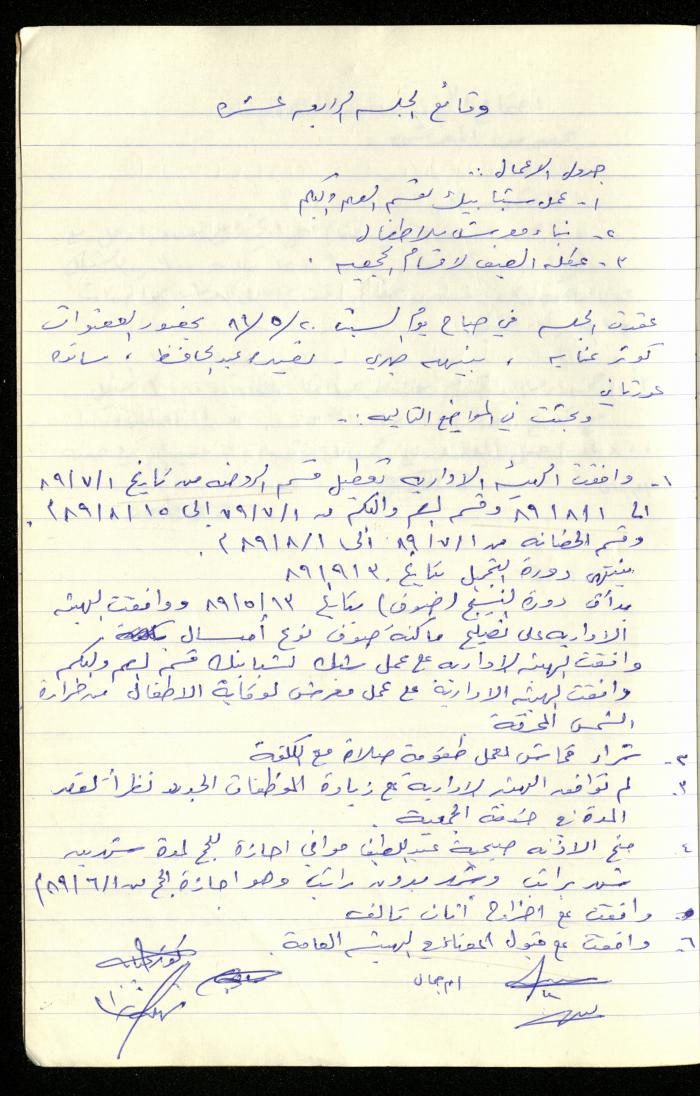 وقائع الجلسه الرابعه عشره
جدول الاعمال :.
١- عمل شبابيك لقسم الصم والبكم
٢- بناء معرش للاطفال
٣- عطله الصيف لاقسام الجمعيه .
عقدت الجلسه في صباح يوم السبت ٨٩/٥/٢٠ بحضور العضوات
كوثر عنايه ، بنيهه صبري ، عبد الحافظ ، سائده
وبحثت في المواضيع التاليه :.
١- وافقت الهيئه الاداريه تعطيل قسم الروضه من تاريخ ٨٩/٧/١
الى ٨٩/٨/١ وقسم الصم والبكم من ٧٩/٧/١ الى ٨٩/٨/١٥ م.
وقسم الحضانه من ٨٩/٧/١ الى ٨٩/٨/١ م.
ينتهي دورة التجميل بتاريخ ٨٩/٩/٣٠
بدأت دورة النسيج (صوف) بتاريخ ٨٩/٥/١٣ ووافقت الهيئه
الاداريه على تصليح ماكنة صوف نوع
وافقت الهيئه الاداريه على عمل شبك لشبابيك قسم الصم والبكم
وافقت الهيئه الادارية على عمل معرش لوقاية الاطفال من حرارة
الشمس المحرقة
٢- شراء قماش لعمل طقومة صلاة مع الكلفة
٣- لم توافق الهيئه الادارية على زيادة الموظفات الجدد نظراً لقصر
المدة في خدمة الجمعية .
٤- منح الآذنه صبحية عبد اللطيف موافي اجازة للحج لمدة شهرين
شهر براتب وشهر بدون راتب وهو اجازة الحج من ٨٩/٦/١ م
٥- وافقت على اخراج أثاث تالف
٦- وافقت على قبول اعضاء في الهيئه العامة .
كوثر عنايه
ام جمال